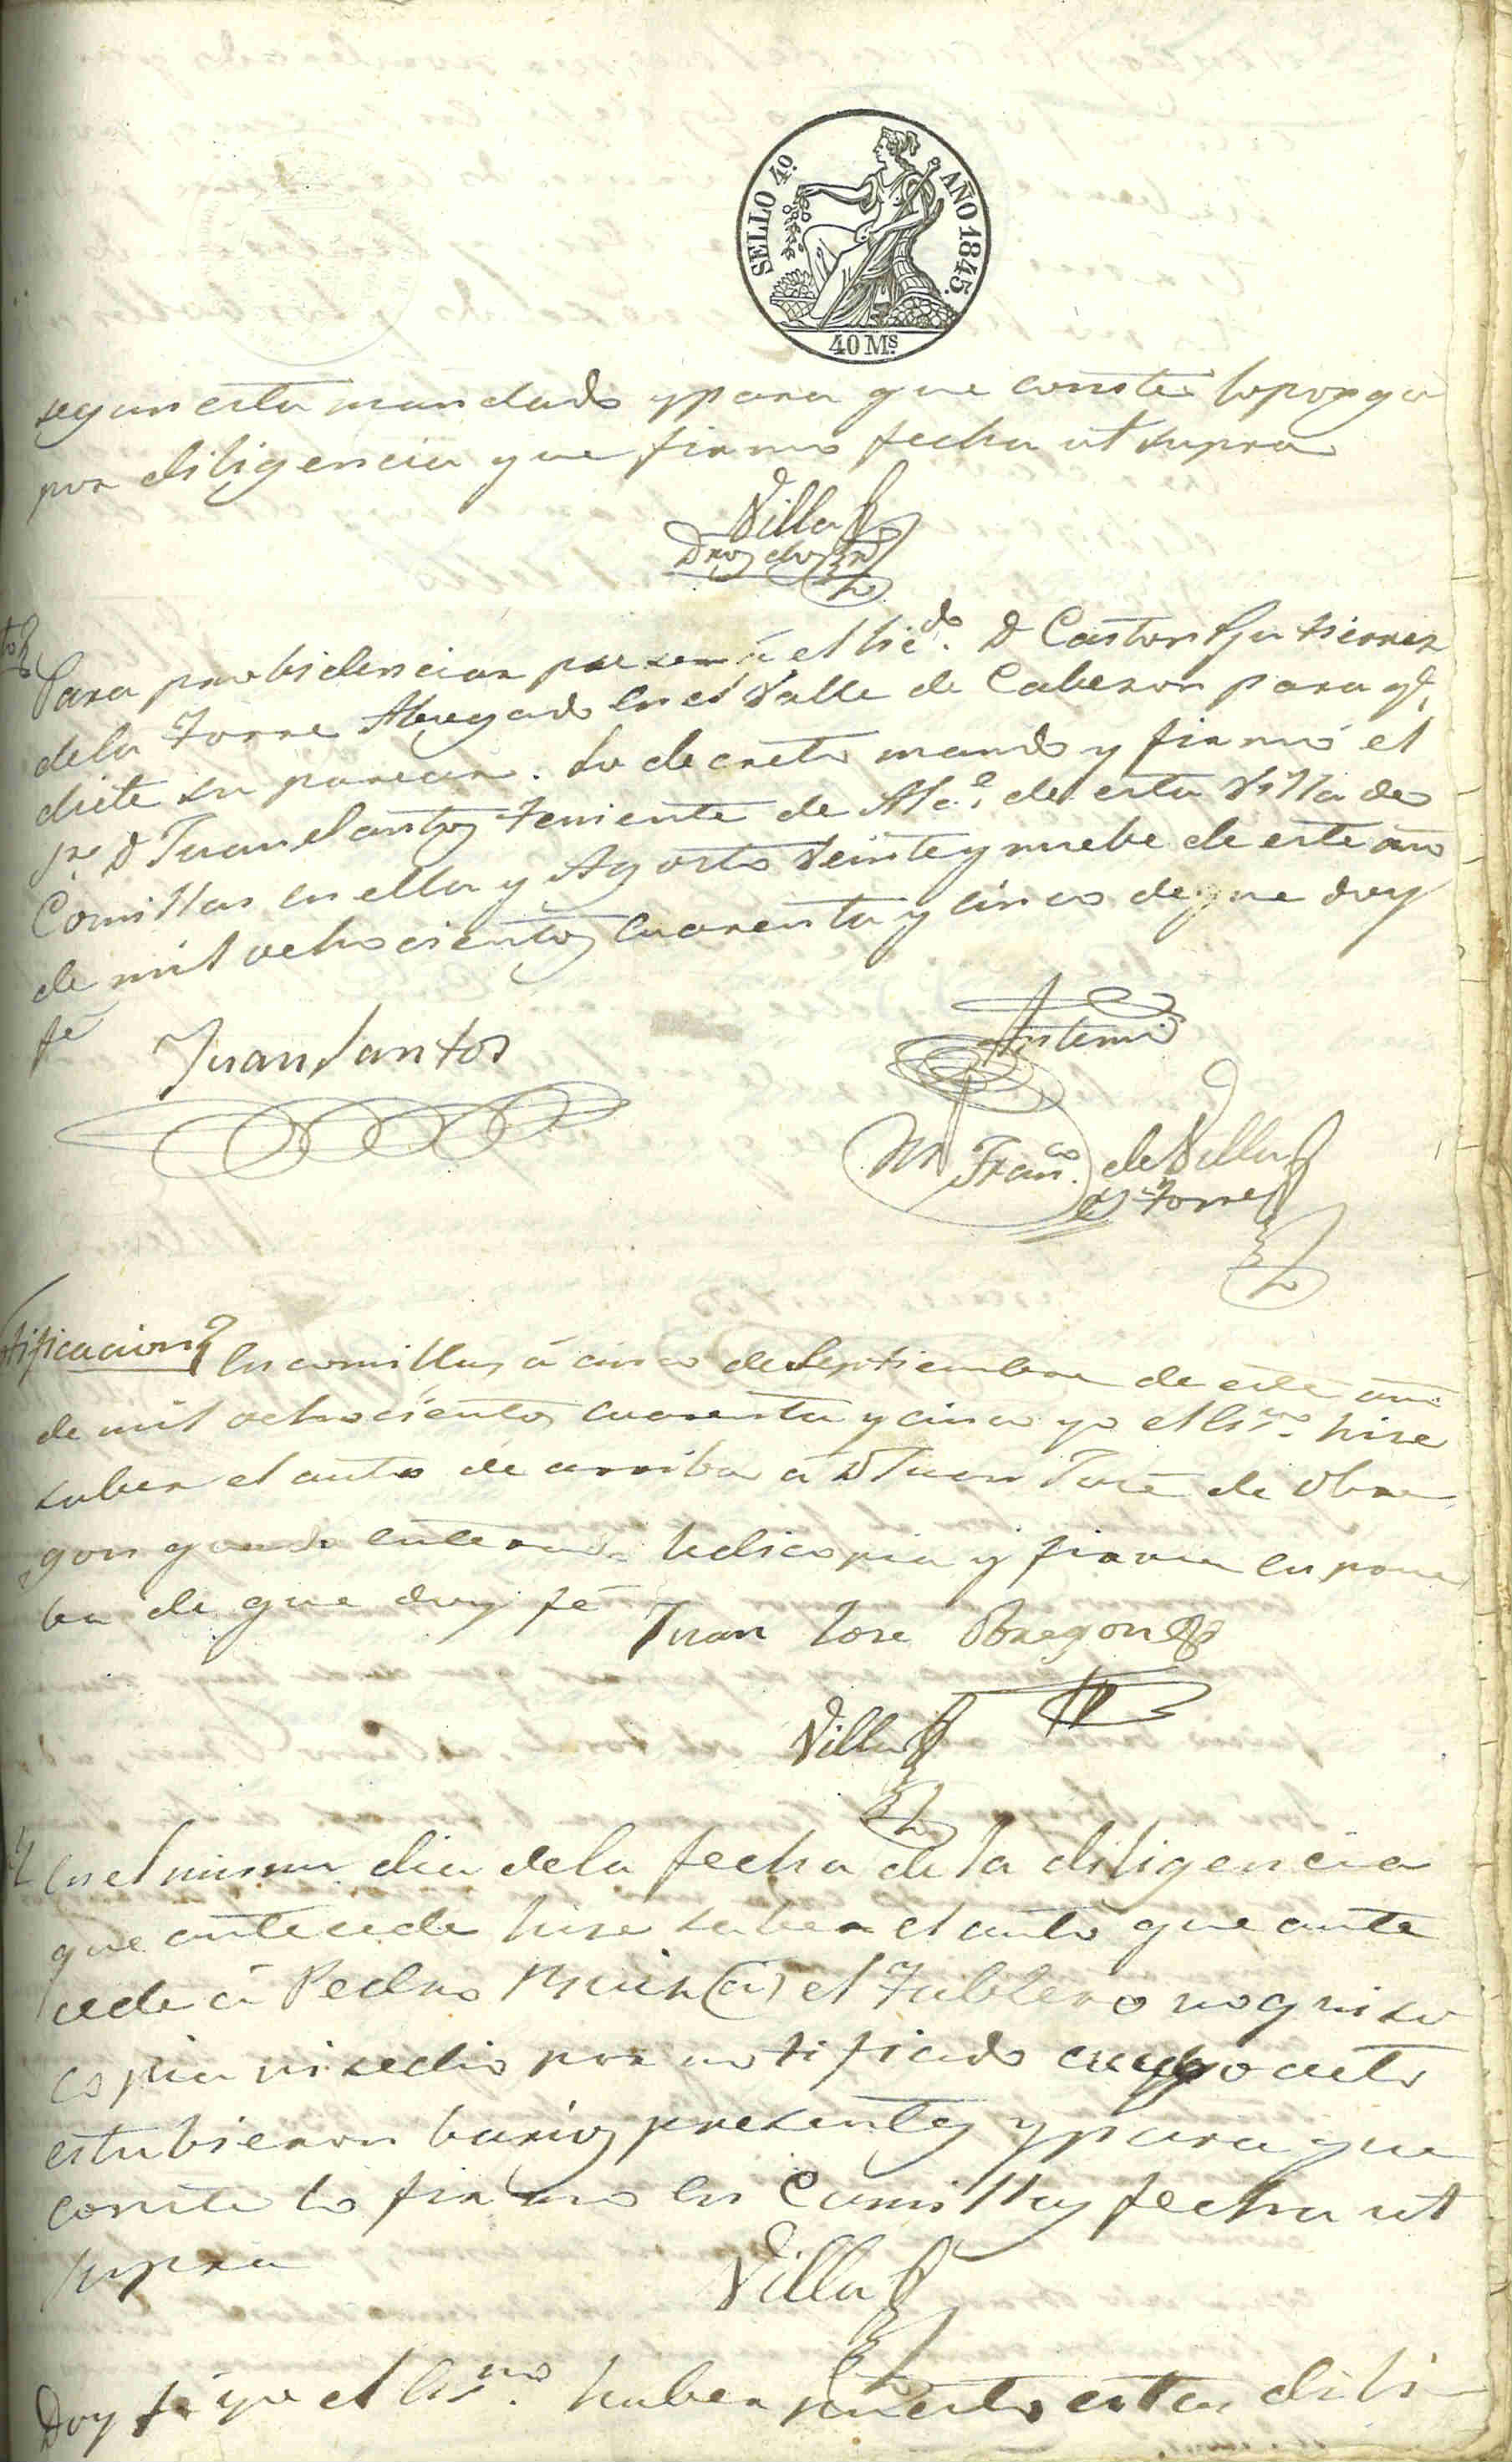 SELLO 4º. AÑO 1845.
40 Ms.
segun esta mandado y para que conste lo pongo
por diligencia que firmo fecha ut supra
Villa
Dros dos rs
Para probidenciar pase a el Licdo. D Castor Gutierrez
dela Torre Abogado en el Valle de Cabezon para qe.
dicte su parecer. Lo decreto mando y firmó el
Sr. D Juan Santos teniente de Alce. de esta Villa de
Comillas en ella y Agosto veinte y nuebe de este año
de mil ochocientos cuarenta y cinco de que doy
fé
Juan Santos
Antemi
Franco. de Villa
y Torre
tificacion
En comillas á cinco de Septiembre de este año
de mil ochocientos cuarenta y cinco yo el Esno. hize
saber el auto de arriba á D Juan José de Obre
gon quedo enterado ledi copia y firma en prue
ba de que doy fé
Juan Jose Obregon
Villa
En el mismo dia dela fecha de la diligencia
que antecede hize saber el auto que ante
cede á Pedro Ruiz (a) el Tablero no quiso
copia ni sedio por notificado cuyo acto
estubieron barios presentes y para que
conste lo firmo en Comillas fecha ut
supra
Villa
Doy fé yo el Esno. haber puesto estas dili